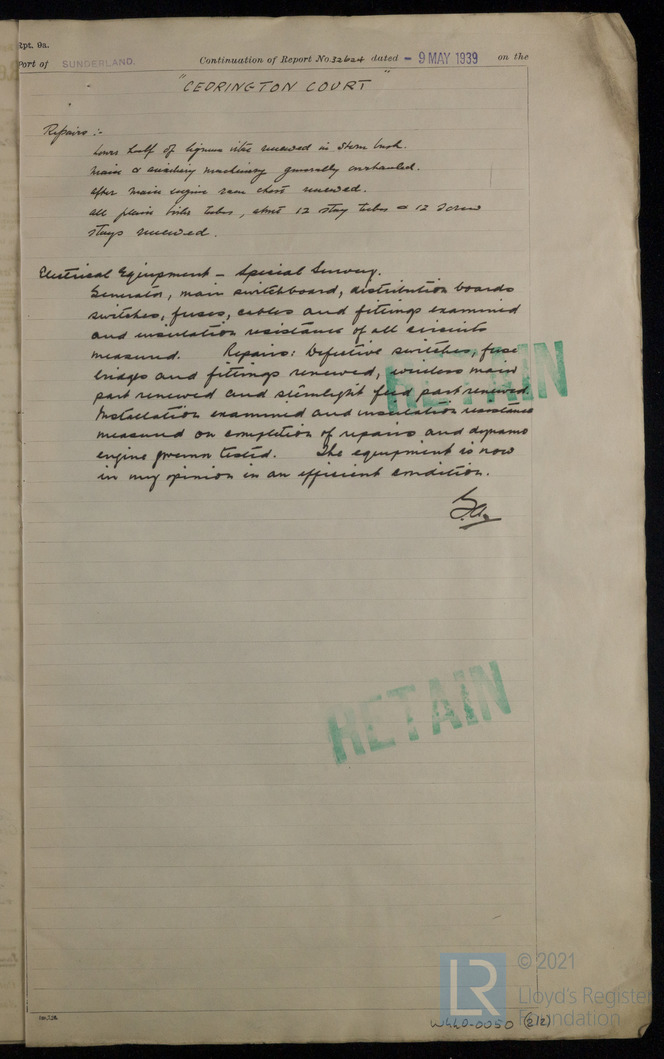 Rpt. 9a.
Port of SUNDERLAND. Continuation of Report No. 32624 dated - 9 MAY 1939 on the
"CEDRINGTON COURT"
Repairs :-
Lower half of lignum vitae renewed in stern bush.
Main & auxiliary machinery generally overhauled.
After main engine room chest renewed.
All plain boiler tubes, about 12 stay tubes & 12 screw
stays renewed.
Electrical Equipment - Special Survey.
Generator, main switchboard, distribution boards
switches, fuses, cables and fittings examined
and insulation resistance of all circuits
measured. Repairs: Defective switches, fuse
bridges and fittings renewed, wireless main
part renewed and sternlight feed part renewed.
Installation examined and insulation resistance
measured on completion of repairs and dynamo
engine governor tested. The equipment is now
in my opinion in an efficient condition.
RETAIN
RETAIN
© 2021
LR
Lloyd's Register
Foundation
W440-0050 (2/2)